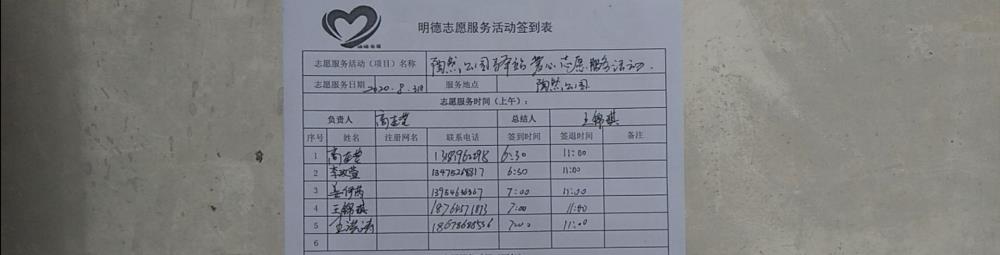 明德志愿服务活动签到表
志愿服务活动（项目）名称 陶然公园驿站爱心志愿服务活动.
志愿服务日期 2020.8.31日 服务地点 陶然公园
志愿服务时间（上午）：
负责人 总结人 王锦琪
序号 姓名 注册网名 联系电话 签到时间 签退时间 备注
1 6:30 11:00
2 13475268817 6:30 11:00
3 7:00 11:00
4 王锦琪 18764571813 7:00 11:00
5 18678688556 7:00 11:00
6